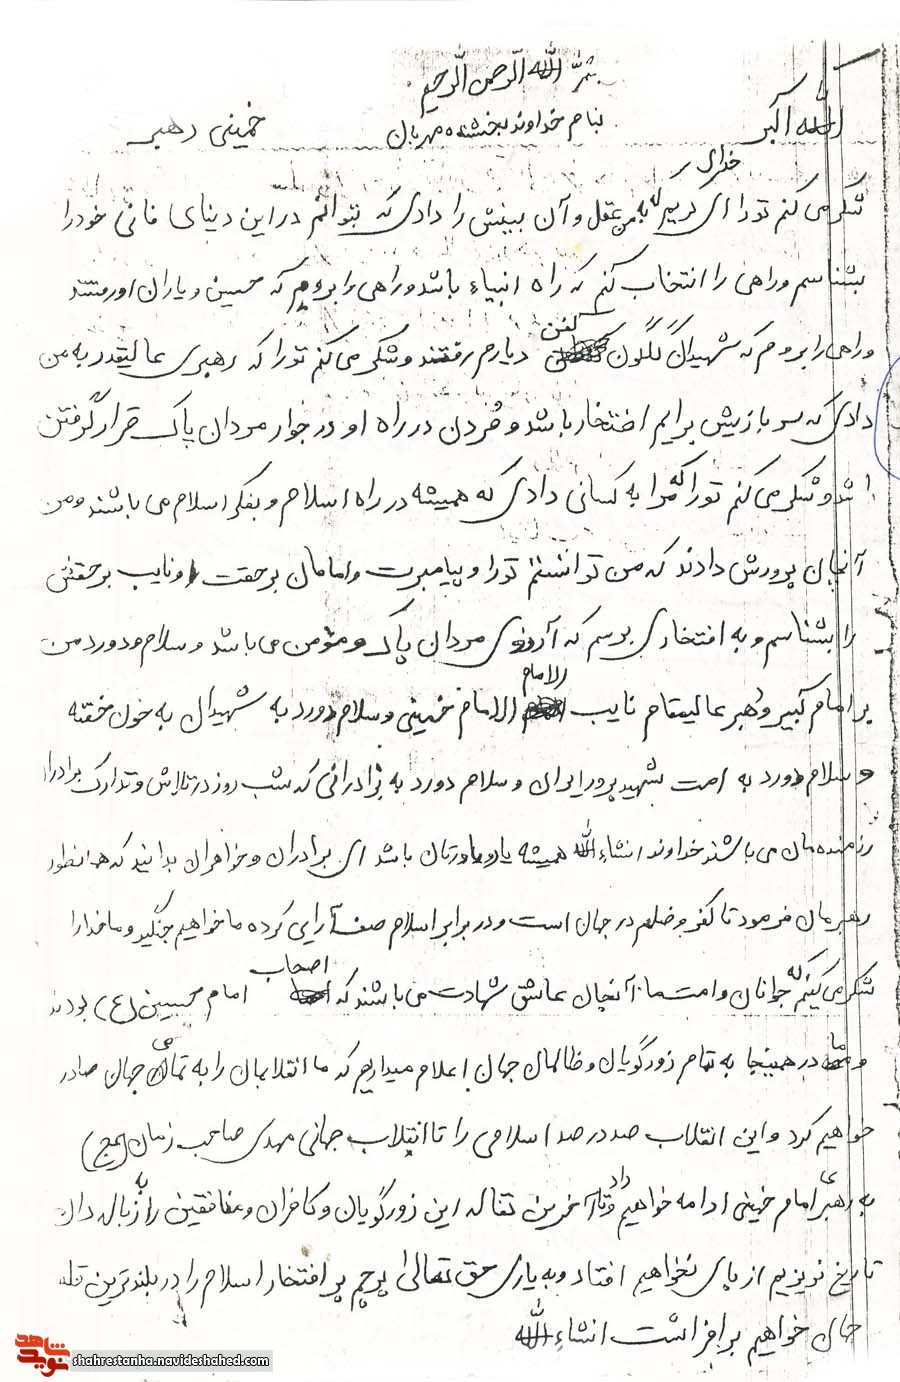 بسم الله الرحمن الرحیم
الله اکبر بنام خداوند بخشنده مهربان خمینی رهبر
خدای
شکر می کنم تو را ای کریم که به من عقل و آن بینش را دادی که بتوانم در این دنیای فانی خود را
بشناسم و راهی را انتخاب کنم که راه انبیاء باشد و راهی را بروم که حسین و یاران او رفتند
و راهی را بروم که شهیدان گلگون کفن دیارم رفتند و شکر می کنم تو را که رهبری عالیقدر به من
دادی که سربازیش برایم افتخار باشد و مُردن در راه او در جوار مردان پاک قرار گرفتن
باشد و شکر می کنم تو را که مرا به کسانی دادی که همیشه در راه اسلام و بفکر اسلام می باشند و من
آنچنان پرورش دادند که من توانستم تو را و پیامبرت و امامان بر حقت و نایب بر حقش
را بشناسم و به افتخاری برسم که آرزوی مردان پاک و مؤمن می باشد و سلام و درود من
بر امام کبیر و رهبر عالیمقام نایب الامام الامام خمینی و سلام و درود به شهیدان به خون خفته
و سلام و درود به امت شهید پرور ایران و سلام و درود به برادرانی که شب روز در تلاش و تدارک برادران
رزمنده مان می باشند خداوند انشاءالله همیشه یار و یاورتان باشد ای برادران و خواهران بدانید که همانطور
رهبرمان فرمود تا کفر و ظلم در جهان است و در برابر اسلام صف آرایی کرده ما خواهیم جنگید و ما خدا را
شکر می کنیم که جوانان و امت ما آنچنان عاشق شهادت می باشند که اصحاب امام حسین (ع) بودند
و ما در همینجا به تمام زورگویان و ظالمان جهان اعلام میداریم که ما انقلابمان را به تمامی جهان صادر
خواهیم کرد و این انقلاب صد در صد اسلامی را تا انقلاب جهانی مهدی صاحب زمان (عج)
به رهبری امام خمینی ادامه خواهیم داد و تا آخرین تفاله این زورگویان و کافران و منافقین را به زباله دان
تاریخ نریزیم از پای نخواهیم افتاد و به یاری حق تعالی پرچم پر افتخار اسلام را در بلندترین قله
جهان خواهیم برافراشت انشاءالله
نوید شاهد
shahrestanha.navideshahed.com